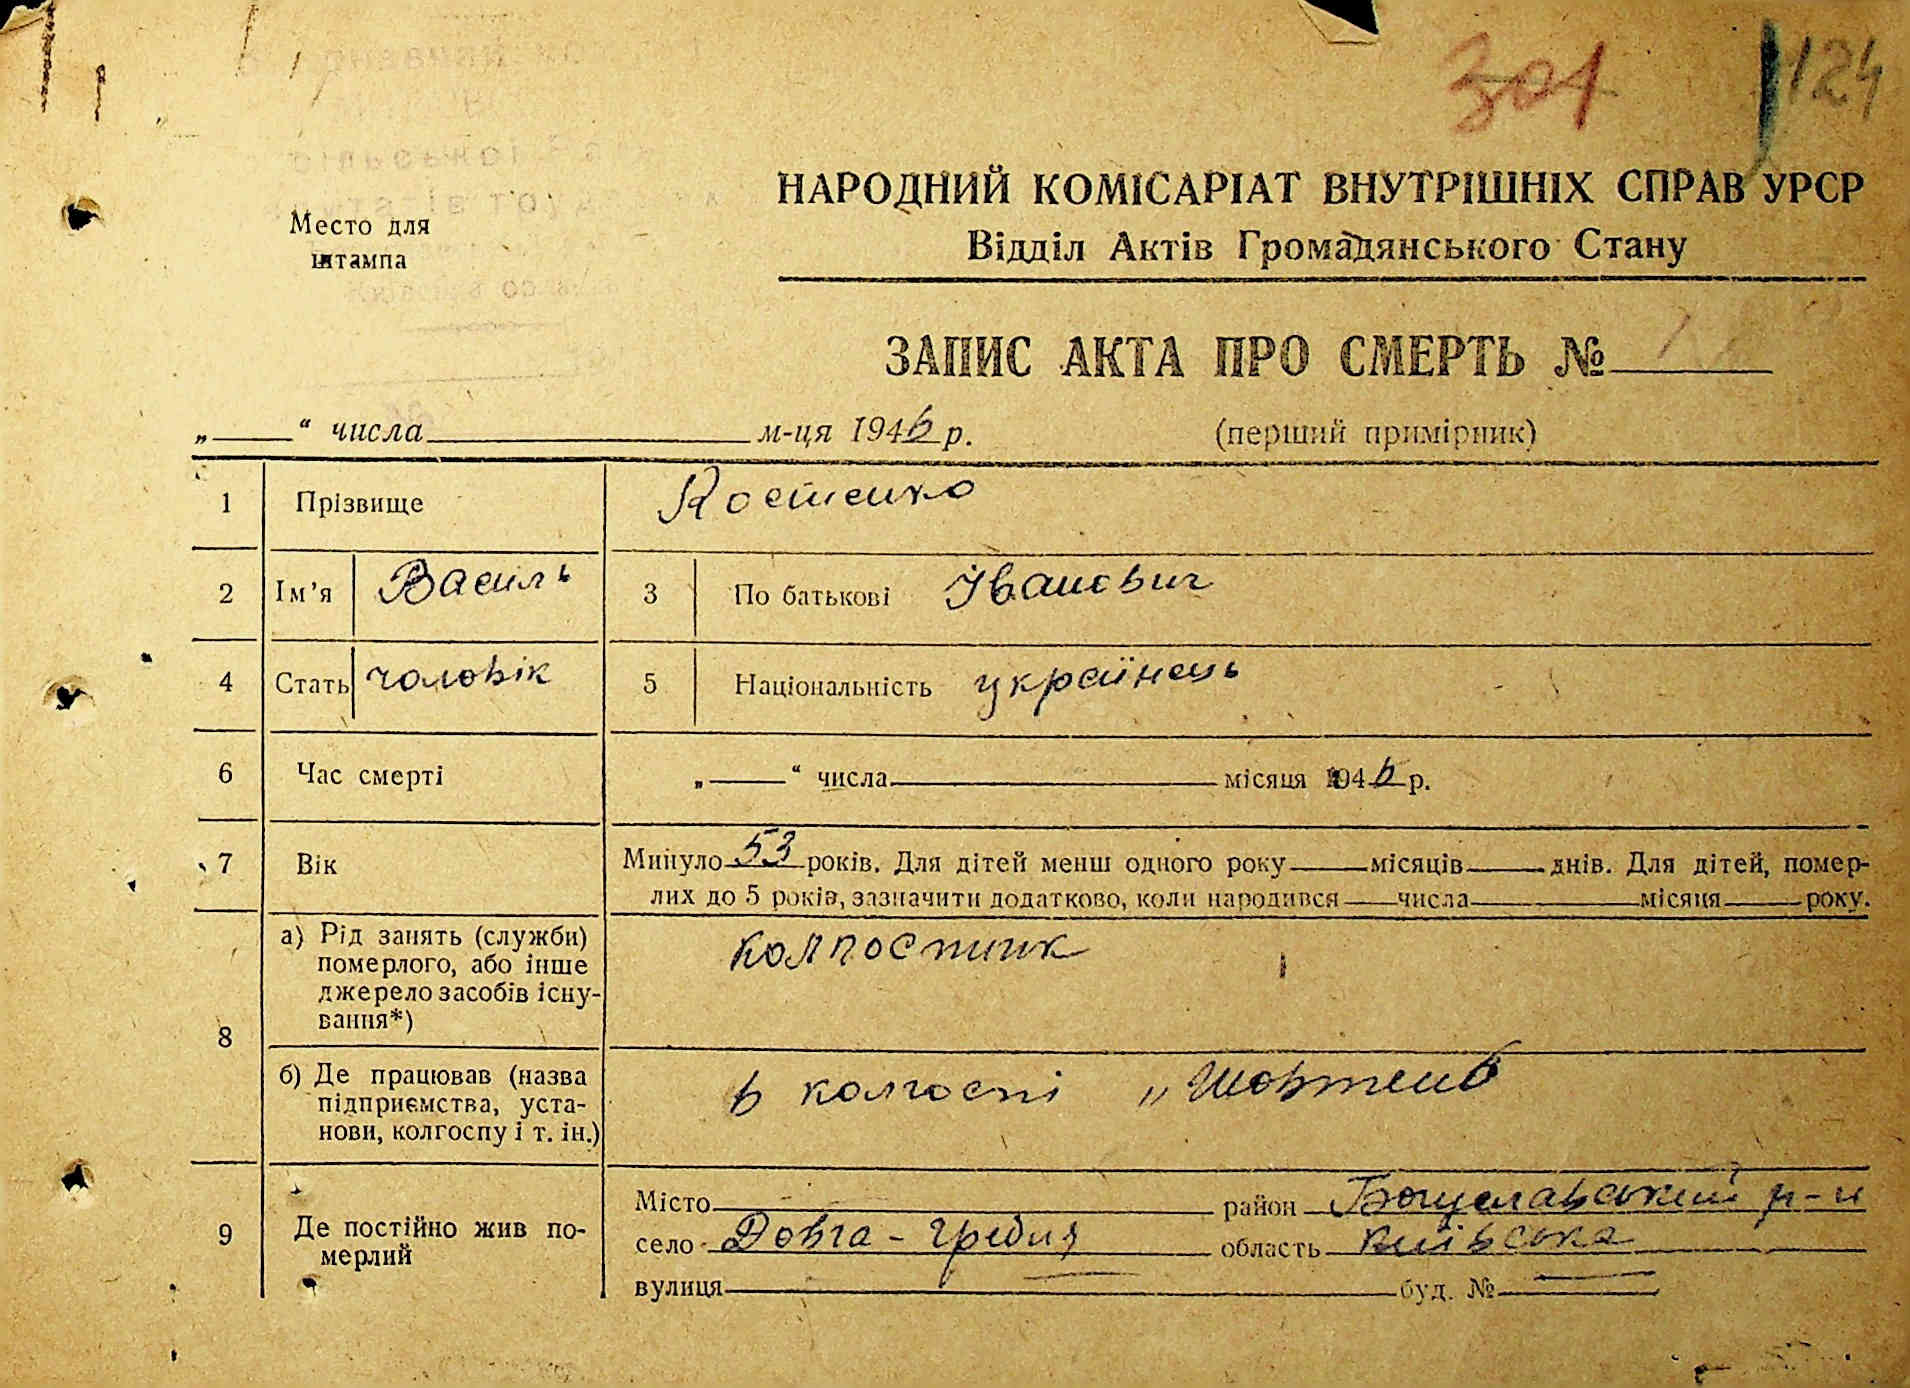 301 124
НАРОДНИЙ КОМІСАРІАТ ВНУТРІШНІХ СПРАВ УРСР
Відділ Актів Громадянського Стану
Место для
штампа
ЗАПИС АКТА ПРО СМЕРТЬ №
„ “ числа м-ця 1946 р. (перший примірник)
1 Прізвище Костенко
2 Ім’я Василь 3 По батькові Іванович
4 Стать чоловік 5 Національність українець
6 Час смерті „ “ числа місяця 1946 р.
7 Вік Минуло 53 років. Для дітей менш одного року місяців днів. Для дітей, помер-
лих до 5 років, зазначити додатково, коли народився числа місяця року.
8 а) Рід занять (служби)
померлого, або інше
джерело засобів існу-
вання*)
колгоспник
б) Де працював (назва
підприємства, уста-
нови, колгоспу і т. ін.)
в колгоспі „Жовтень
9 Де постійно жив по-
мерлий
Місто район Богуславський р-н
село Довга-гребля область київська
вулиця буд. №